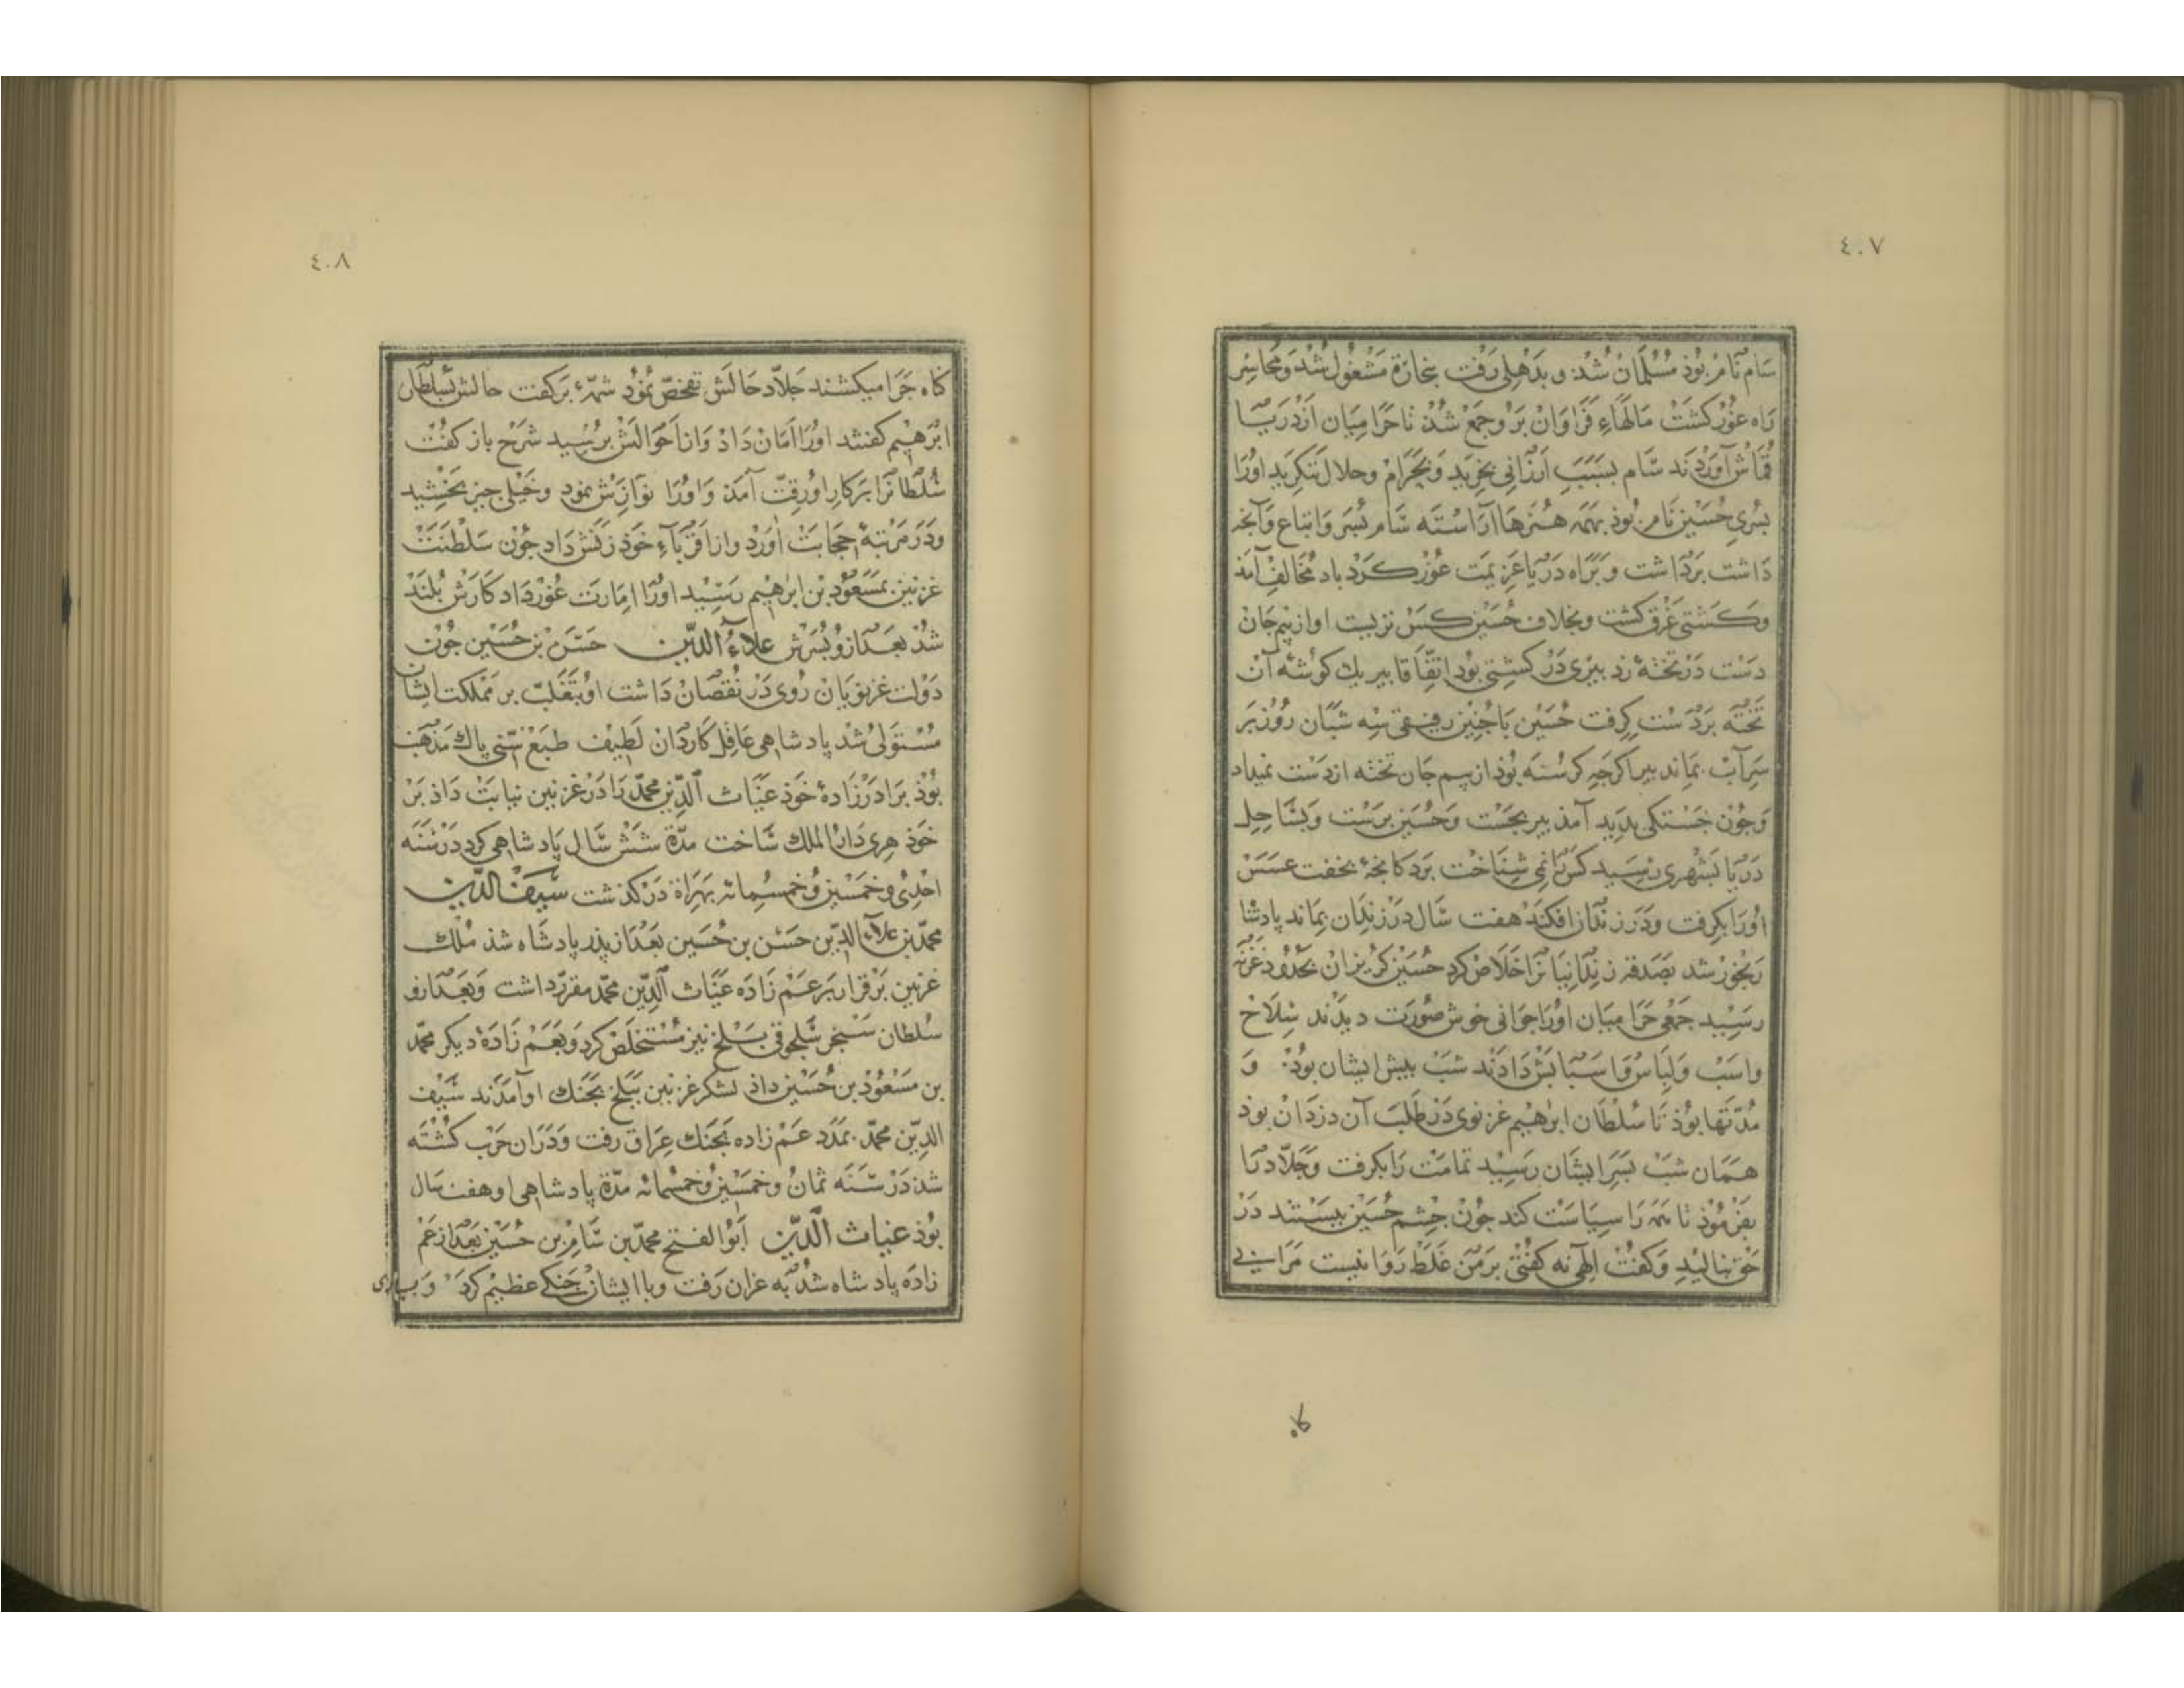 ٤٠٧
سام نام بوذ مسلمان شذ و بدهلی رفت بتجارة مشغول شذ و مجاسر
راه غور کشت مالهاء فراوان برو جمع شذ تا حرامیان از دریا
قماش آوردند سام بسبب ارزانی بخرید و بحرام وحلال ننکرید اورا
بسری حسین نام بوذ بهمه هنرها آراسته سام بسر واتباع وآنجه
داشت برداشت و براه دریا عزیمت غور کرد باد مخالف آمذ
وکشتی غرق کشت وبخلاف حسین کس نزیست او از بیم جان
دست در تخته زد ببری در کشتی بود اتفاقا ببر یك کوشه آن
تخته بر دست کرفت حسین با جنین رفیقی سه شبان روز بر
سر آب بماند ببر اکرجه کرسنه بوذ از بیم جان تخته از دست نمیداد
وجون خشکی بدید آمذ ببر بجست وحسین برست وبساحل
دریا بشهری رسید کس را نمی شناخت بر دکانجهٔ بخفت عسس
اورا بکرفت ودر زندان افکند هفت سال در زندان بماند پادشا
رنجور شد بصدقه زندانیانرا خلاص کرد حسین کریزان بحدود غزنه
رسید جمعی حرامیان اورا جوانی خوش صورت دیدند سلاح
واسب ولباس واسبابش دادند شب بیش ایشان بوذ و
مدتها بوذ تا سلطان ابرهیم غزنوی در طلب آن دزدان بوذ
همان شب بسر ایشان رسید تمامت را بکرفت وجلاد را
بفرموذ تا همه را سیاست کند جون جشم حسین ببستند در
حق بنالید وکفت الهی نه کفتی بر من غلط روا نیست مرا بی
کاه
٤٠٨
کناه جرا میکشند جلاد حالش تفحص نمود شمهٔ برکفت حالش بسلطان
ابرهیم کفتند اورا امان داد واز احوالش برسید شرح باز کفت
سلطانرا بر کار او رقت آمذ واورا نوازش نمود وخیلی جیز بخشید
ودر مرتبهٔ حجابت آورد واز اقرباء خوذ زنش داد جون سلطنت
غزنین بمسعود بن ابرهیم رسید اورا امارت غور داد کارش بلند
شذ بعد ازو بسرش علاء الدین حسن بن حسین جون
دولت غزنویان روی در نقصان داشت او بتغلب بر مملکت ایشان
مستولی شد پادشاهی عاقل کاردان لطیف طبع سنی پاك مذهب
بوذ برادرزادهٔ خوذ غیاث الدین محمد را در غزنین نیابت داذ بر
خوذ هری دار الملك ساخت مدة شش سال پادشاهی کرد در سنه
احدی وخمسین وخمسمائه بهراة در کذشت سیف الدین
محمد بن علاء الدین حسن بن حسین بعد از پذر پادشاه شذ ملك
غزنین برقرار بر عم زاده غیاث الدین محمد مقرر داشت وبعد ازو
سلطان سنجر سلجوقی بلخ نیز مستخلص کرد وبعم زادهٔ دیکر محمد
بن مسعود بن حسین داذ لشکر غزنین ببلخ بجنك او آمدند سیف
الدین محمد بمدد عم زاده بجنك عراق رفت ودران حرب کشته
شذ در سنه ثمان وخمسین وخمسمائه مدة پادشاهی او هفت سال
بوذ غیاث الدین ابو الفتح محمد بن سام بن حسین بعد از عم
زاده پادشاه شذ به غزان رفت وبا ایشان جنکی عظیم کرد وبسیاری